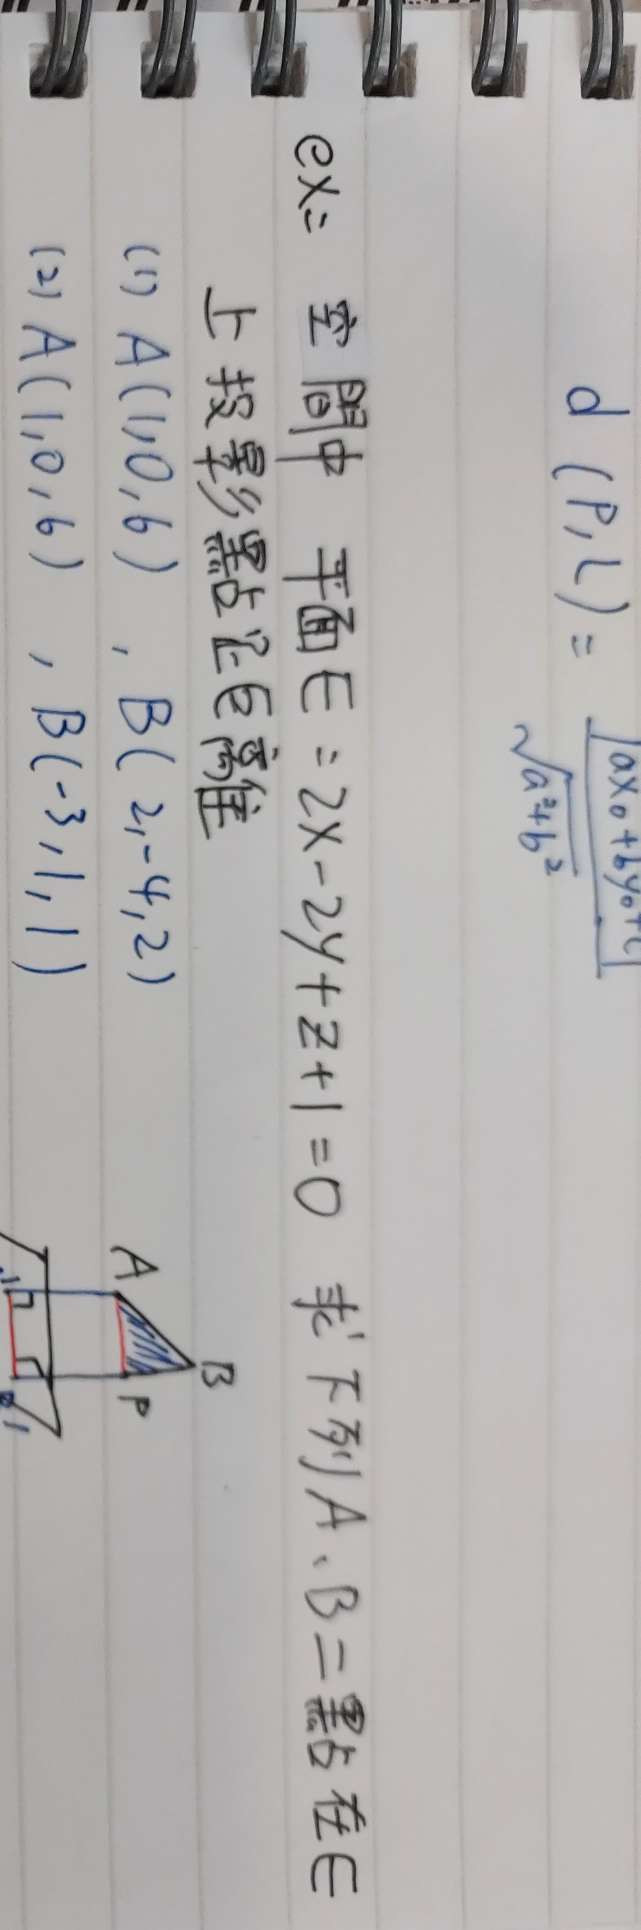 d (P, L) = |ax₀+by₀+c| / √a²+b²
ex: 空間中 平面E:2x-2y+z+1=0 求下列A、B二點在E
上投影點距離
(1) A(1,0,6) , B(2,-4,2)
(2) A(1,0,6) , B(-3,1,1)
A
B
P